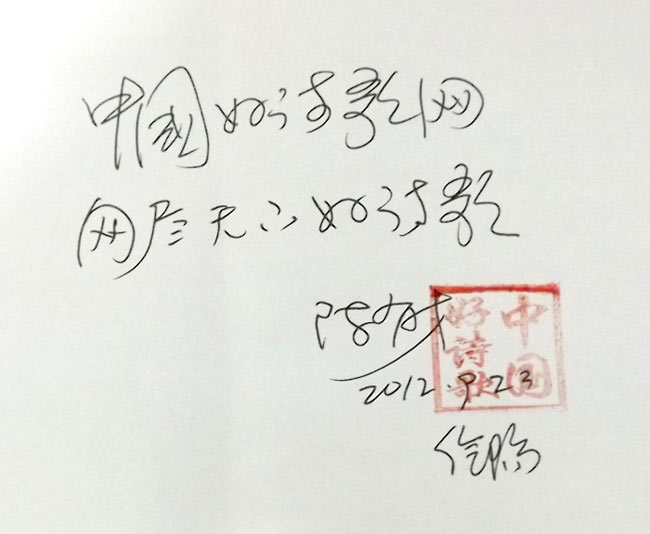 中国好诗歌网
网尽天下好诗歌
2012.9.23
中国
好诗歌